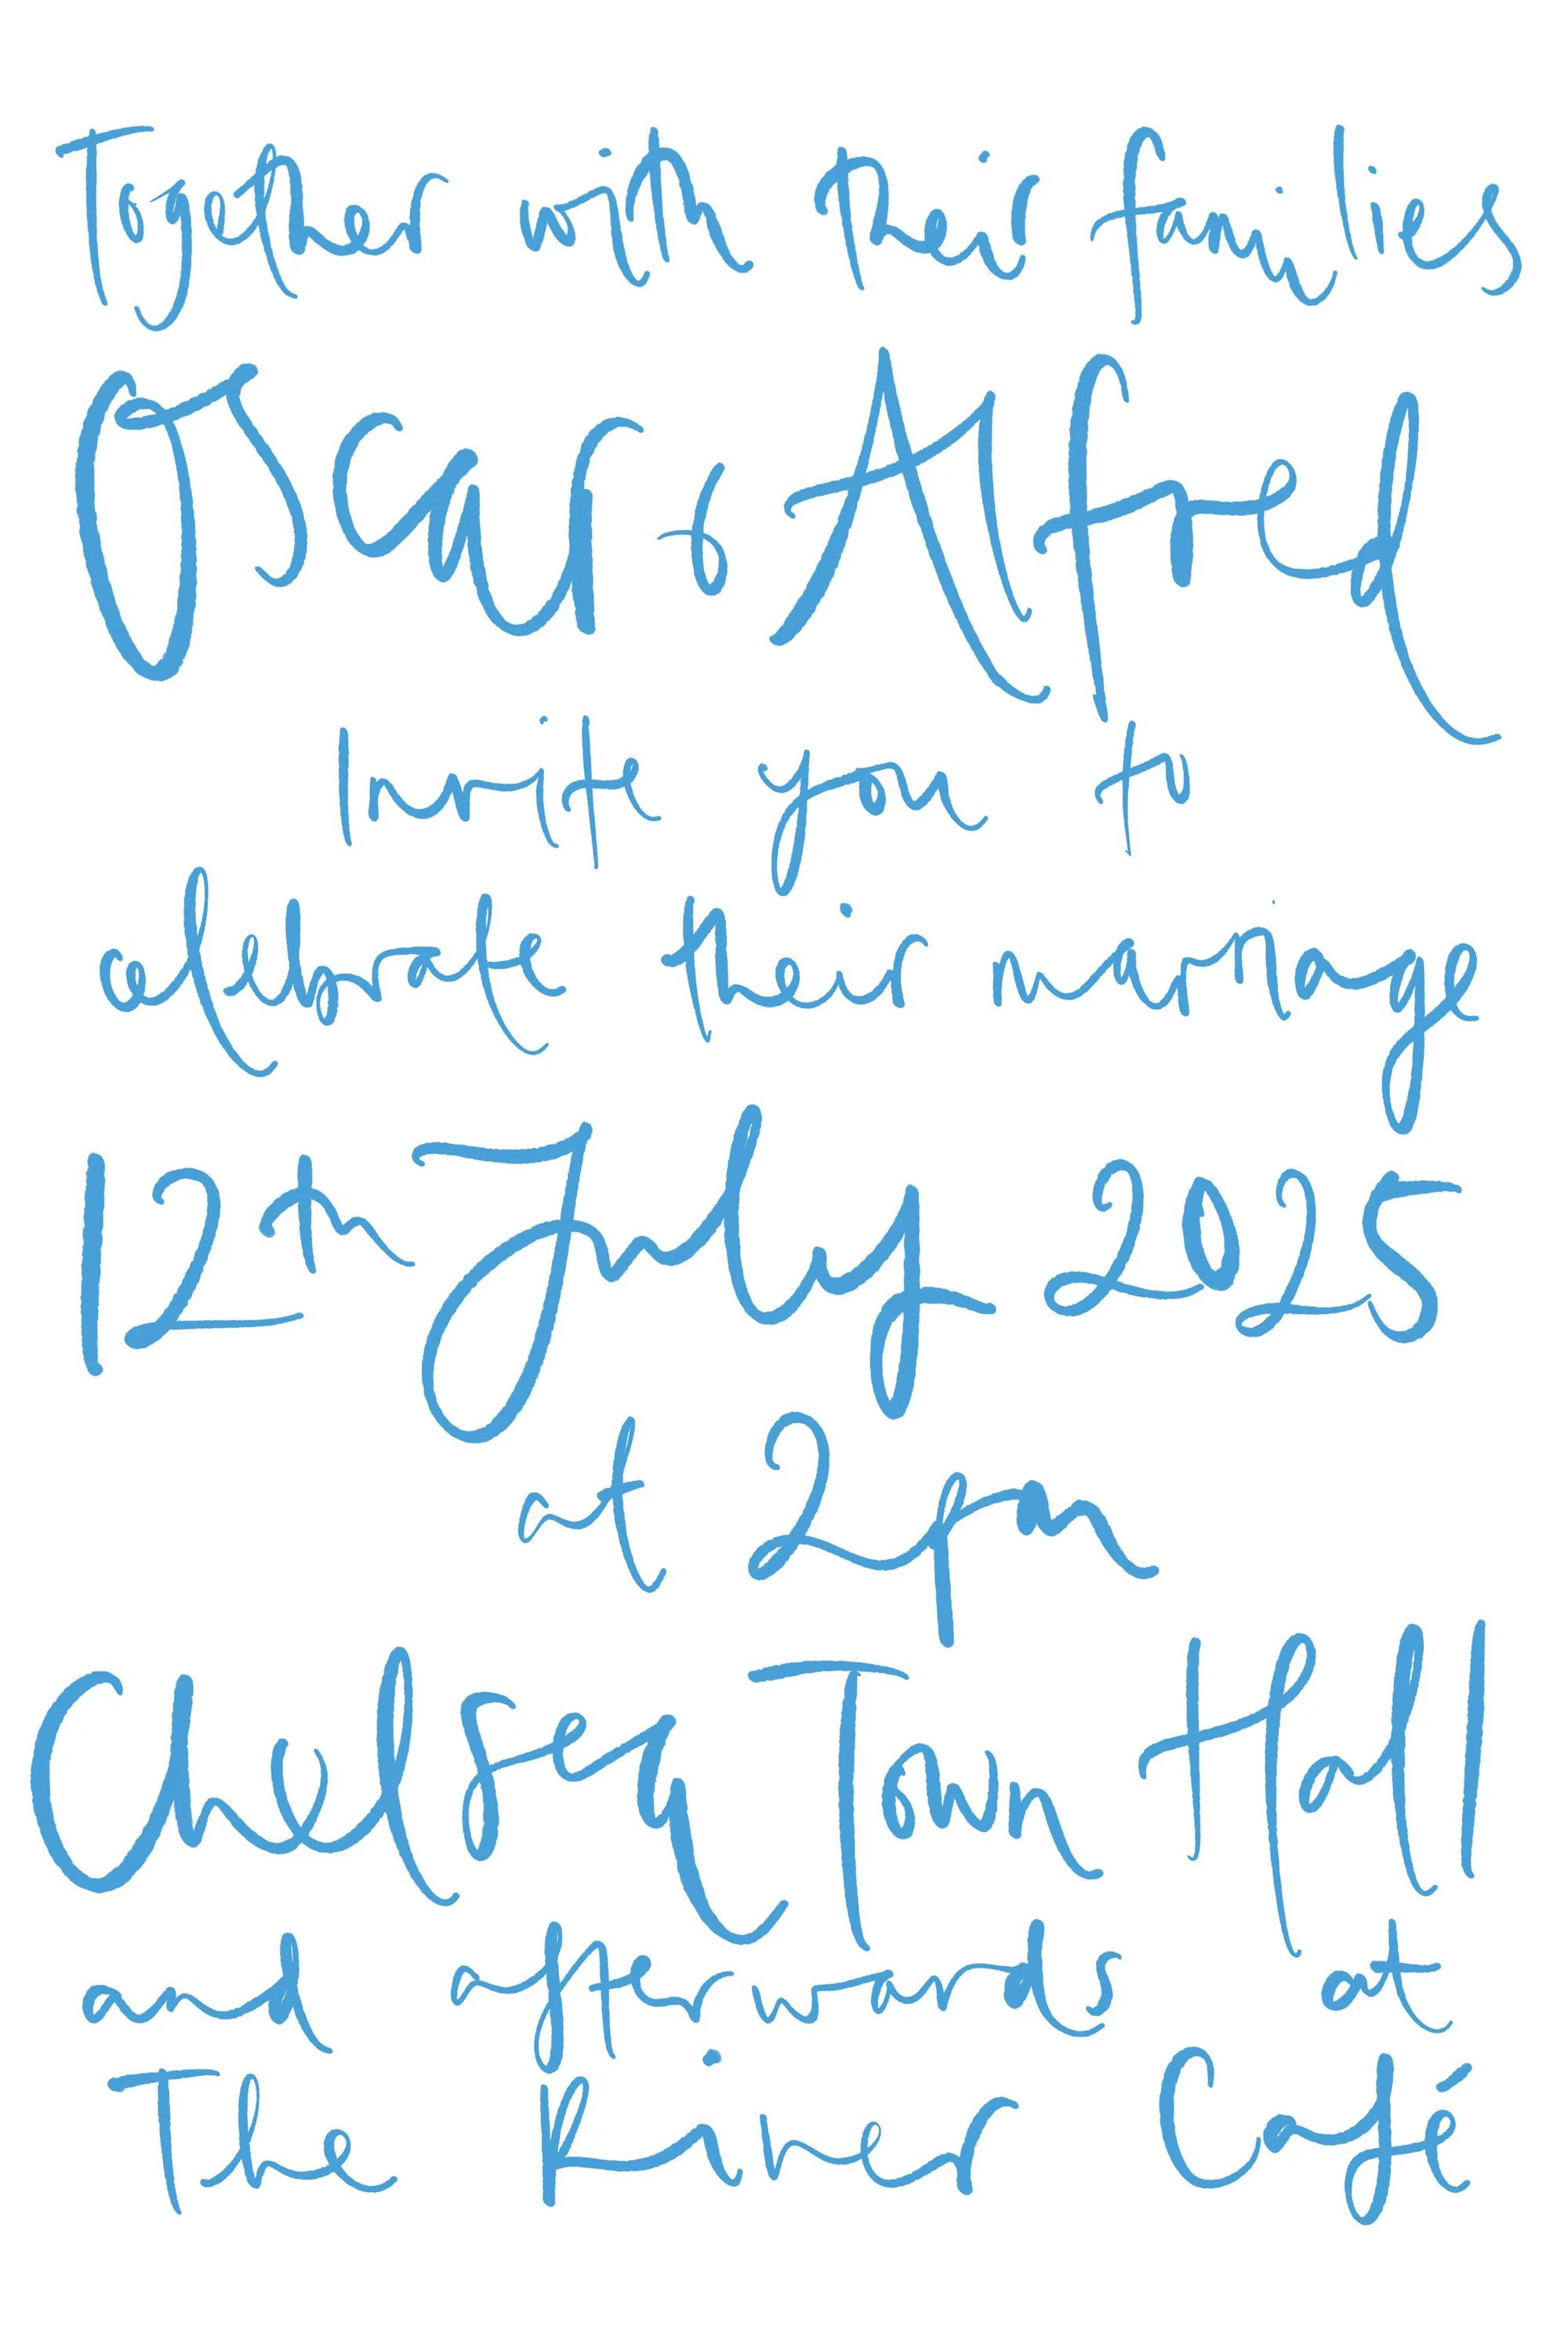 Together with their families
Oscar & Alfred
Invite you to
celebrate their marriage
12th July 2025
at 2pm
Chelsea Town Hall
and afterwards at
The River Café